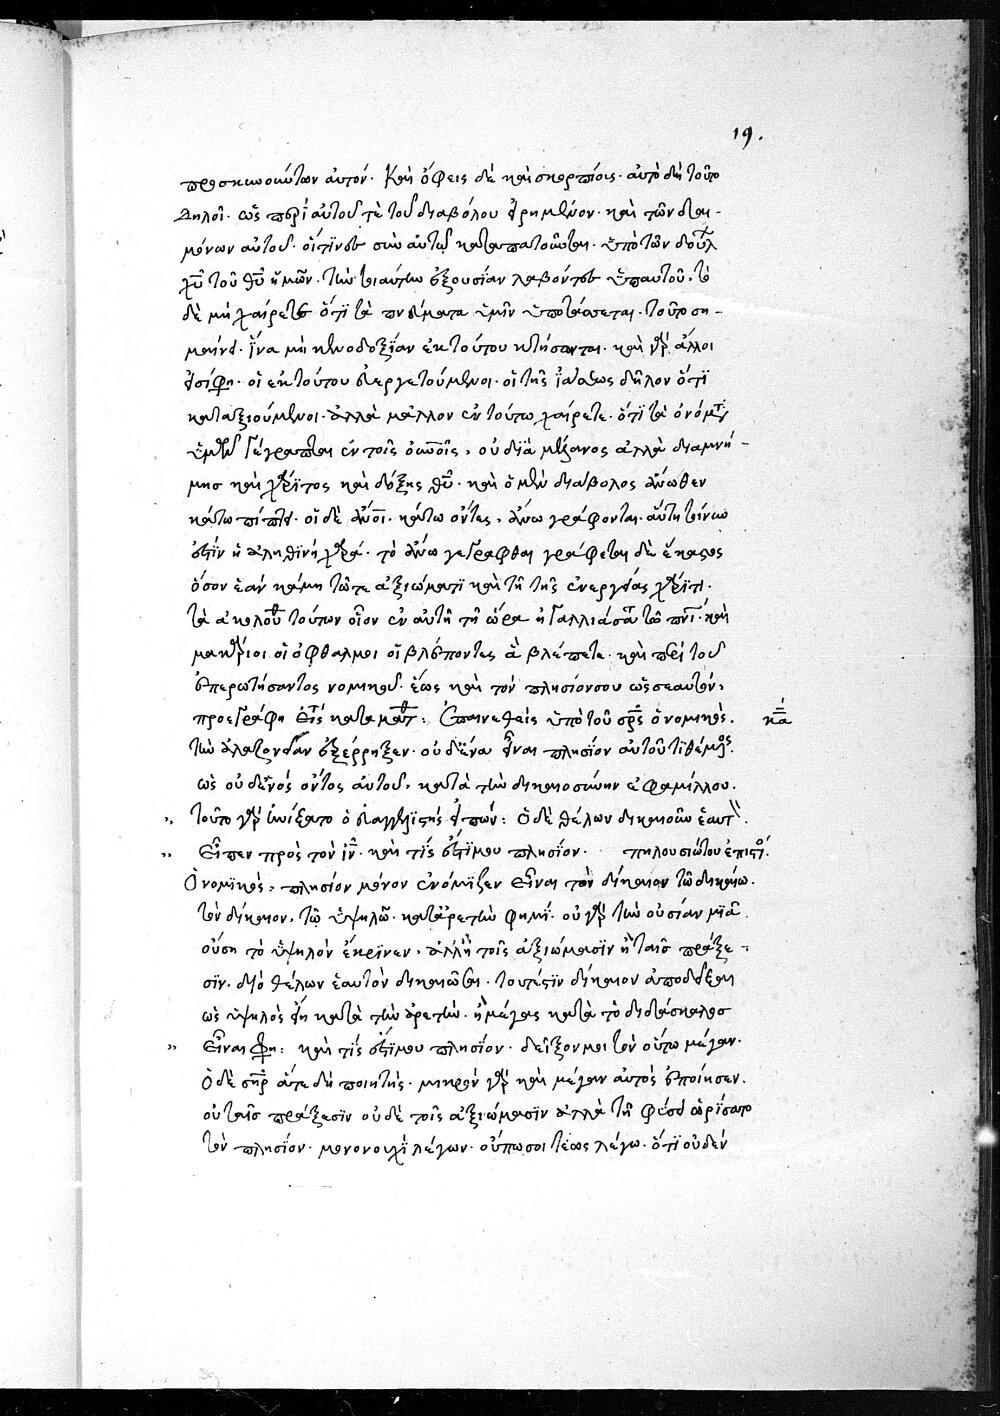 19.
προσκυνούντων αὐτόν. Καὶ ὄφεις δὲ καὶ σκορπίοις. αὐτὸ δὴ τοῦτο
δηλοῖ. ὡς περὶ αὐτοῦ τὲ τοῦ διαβόλου εἰρημένον. καὶ τῶν δαι-
μόνων αὐτοῦ. οἵτινες σὺν αὐτῷ καταπατοῦνται. ὑπὸ τῶν δούλ
χῦ τοῦ θῦ ἡμῶν. τὴν τοιαύτην ἐξουσίαν λαβόντες ὑπ αυτοῦ. τὸ
δὲ μὴ χαίρετε ὅτι τὰ πνεύματα ὑμῖν ὑποτάσσεται. τοῦτο ση-
μαίνει. ἵνα μὴ κενοδοξίαν ἐκ τούτου κτήσωνται. καὶ γὰρ ἄλλοι
εἰσί φη. οἱ ἐκ τούτου εὐεργετούμενοι. οἱ τῆς ἰάσεως δῆλον ὅτι
καταξιούμενοι. ἀλλὰ μᾶλλον ἐν τούτω χαίρετε. ὅτι τὰ ὀνόματ
ὑμῶν γέγραπται ἐν τοῖς οὐνοῖς, οὐ διὰ μέλανος ἀλλὰ διὰ μνή-
μησ καὶ χάριτος καὶ δόξης θῦ. καὶ ὁ μὲν διάβολος ἄνωθεν
κάτω πίπτει. οἱ δὲ ἄνοι. κάτω ὄντες, ἄνω γράφονται. αὕτη τοίνυν
ἐστὶν ἡ ἀληθινὴ χαρά. τὸ ἄνω γεγράφθαι γράφεται δὲ ἕκαστος
ὅσον ἐὰν κάμη τῶ τε ἀξιώματι καὶ τῆ τῆς ἐνεργείας χάριτι.
τὰ ἀκόλουθ τούτων οἷον ἐν αὐτῆ τῆ ὥρα ἠγαλλιάσατ τῶ πνι. καὶ
μακάριοι οἱ ὀφθαλμοι οἱ βλέποντες ἃ βλέπετε. καὶ περὶ τοῦ
ἐπερωτήσαντος νομικοῦ. ἕως καὶ τὸν πλησίον σου ὡς σεαυτόν,
προεγράφη εἰς κατα ματθ: Ἐπαινεθεὶς ὑπὸ τοῦ σρς ὁ νομικὸς. κα
τὴν ἀλαζονείαν ἐξέρρηξεν. οὐδένα εἶναι πλησίον αὐτοῦ τιθέμενος.
ὡς οὐδενὸς ὄντος αὐτοῦ, κατὰ τὴν δικαιοσύνην ἐφαμίλλου.
" τοῦτο γὰρ ἠνίξατο ὁ εὐαγγελιστὴς εἰπών: Ὁ δὲ θέλων δικαιοῦν ἑαυτὸν.
" Εἶπεν πρὸς τὸν ἰν. καὶ τίς ἐστί μου πλησίον. πηλουσιώτου ἐπιστο.
Ὁ νομικὸς, πλησίον μόνον ἐνόμιζεν εἶναι τὸν δίκαιον τῶ δικαίω.
τὸν δίκαιον, τῶ ὑψηλῶ. κατ ἀρετὴν φημί. οὐ γὰρ τὴν οὐσίαν μιᾶ
οὔση τὸ ὑψηλὸν ἔκρινεν, ἀλλ ἢ τοῖς ἀξιώμασιν ἢ ταῖς πράξε-
σιν. διὸ θέλων ἑαυτὸν δικαιῶσαι. τουτέστιν δίκαιον ἀποδεῖξαι
ὡς ὑψηλὸς εἴη κατὰ τὴν ἀρετὴν. ἢ μέγας κατὰ τὸ διδάσκαλος
" εἶναι φη: καὶ τίς ἐστί μου πλησίον. δεῖξόν μοι τὸν οὕτω μέγαν.
Ὁ δὲ σηρ ἅτε δὴ ποιητής. μικρὸν γὰρ καὶ μέγαν αὐτὸς ἐποίησεν.
οὐ ταῖς πράξεσιν οὐδὲ τοῖς ἀξιώμασιν ἀλλὰ τῆ φύσει ὡρίσατο
τὸν πλησίον. μονονουχὶ λέγων. οὔπω σοι τέως λέγω. ὅτι οὐδὲν